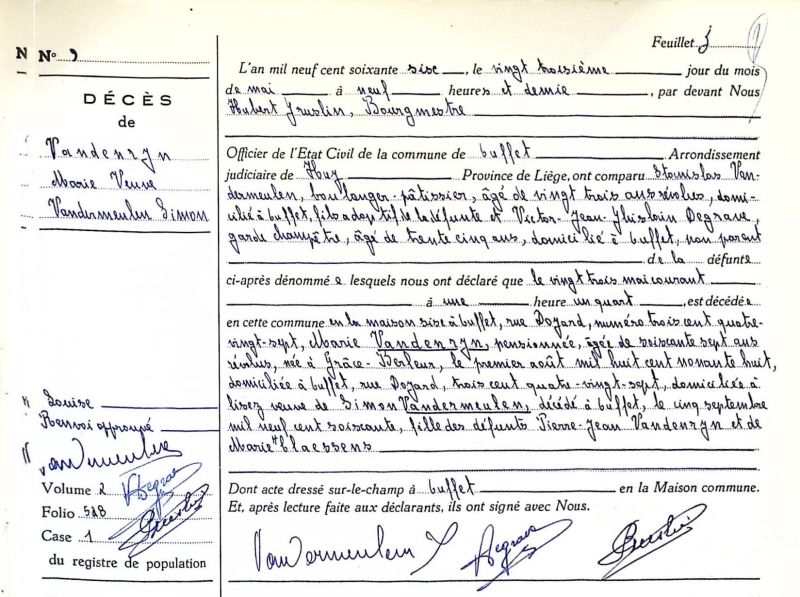 N
N° 9
DÉCÈS
de
Vandenryn
Marie Veuve
Vandermeulen Simon
Louise
Renvoi approuvé
Vandermeulen
Volume 2
Folio 528
Case 1
du registre de population
Feuillet 3
L'an mil neuf cent soixante sise, le vingt troisième jour du mois
de mai à neuf heures et demie, par devant Nous
Hubert , Bourgmestre
Officier de l'Etat Civil de la commune de Buffet Arrondissement
judiciaire de Huy Province de Liège, ont comparu Stanislas Van-
dermeulen, boulanger-pâtissier, âgé de vingt trois ans révolus, domi-
cilié à Buffet, fils adoptif de la défunte et Victor-Jean-Ghislain Degrave,
garde champêtre, âgé de trente cinq ans, domicilié à Buffet, non parent
de la défunte
ci-après dénommée lesquels nous ont déclaré que le vingt trois mai courant
à une heure un quart, est décédée
en cette commune en la maison sise à Buffet, rue Dozard, numéro trois cent quatre-
vingt-sept, Marie Vandenryn, pensionnée, âgée de soixante sept ans
révolus, née à Grâce-Berleur, le premier août mil huit cent nonante huit,
domiciliée à Buffet, rue Dozard, trois cent quatre-vingt-sept, domiciliée à
lisez veuve de Simon Vandermeulen, décédé à Buffet, le cinq septembre
mil neuf cent soixante, fille des défunts Pierre-Jean Vandenryn et de
Marie Claessens
Dont acte dressé sur-le-champ à Buffet en la Maison commune.
Et, après lecture faite aux déclarants, ils ont signé avec Nous.
Vandermeulen S Degrave